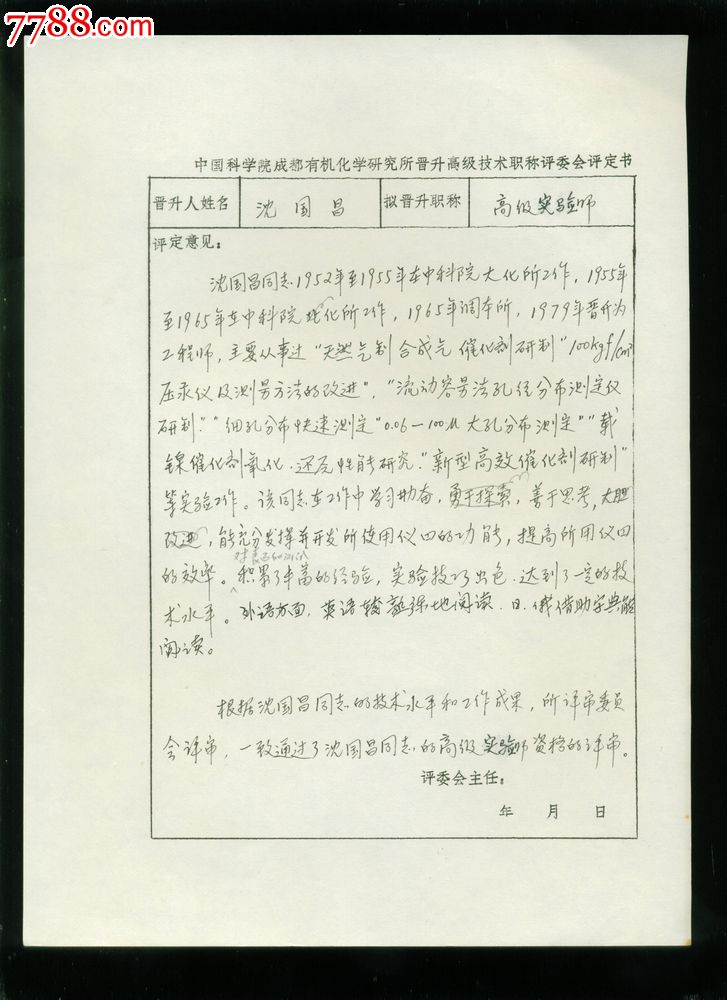 7788.com
中国收藏热线
中国科学院成都有机化学研究所晋升高级技术职称评委会评定书
晋升人姓名 沈国昌 拟晋升职称 高级实验师
评定意见：
沈国昌同志1952年至1955年在中科院大化所工作，1955年
至1965年在中科院 化所工作，1965年调本所，1979年晋升为
工程师，主要从事过"天然气制合成气催化剂研制""100kgf/cm²
压汞仪及测量方法的改进"，"流动容量法孔径分布测定仪
研制""细孔分布快速测定""0.06—100μ大孔分布测定""载
镍催化剂氧化、还原性能研究"."新型高效催化剂研制"
等实验工作。该同志在工作中学习勤奋，勇于探索，善于思考，大胆
改进，能充分发挥并开发所使用仪四的功能，提高所用仪四
的效率。积累了丰富的经验，实验技巧出色.达到了一定的技
术水平。外语方面，英语较 地阅读.日、俄借助字典能
阅读。
根据沈国昌同志的技术水平和工作成果，所评审委员
会评审，一致通过了沈国昌同志的高级实验师资格的评审。
评委会主任：
年 月 日